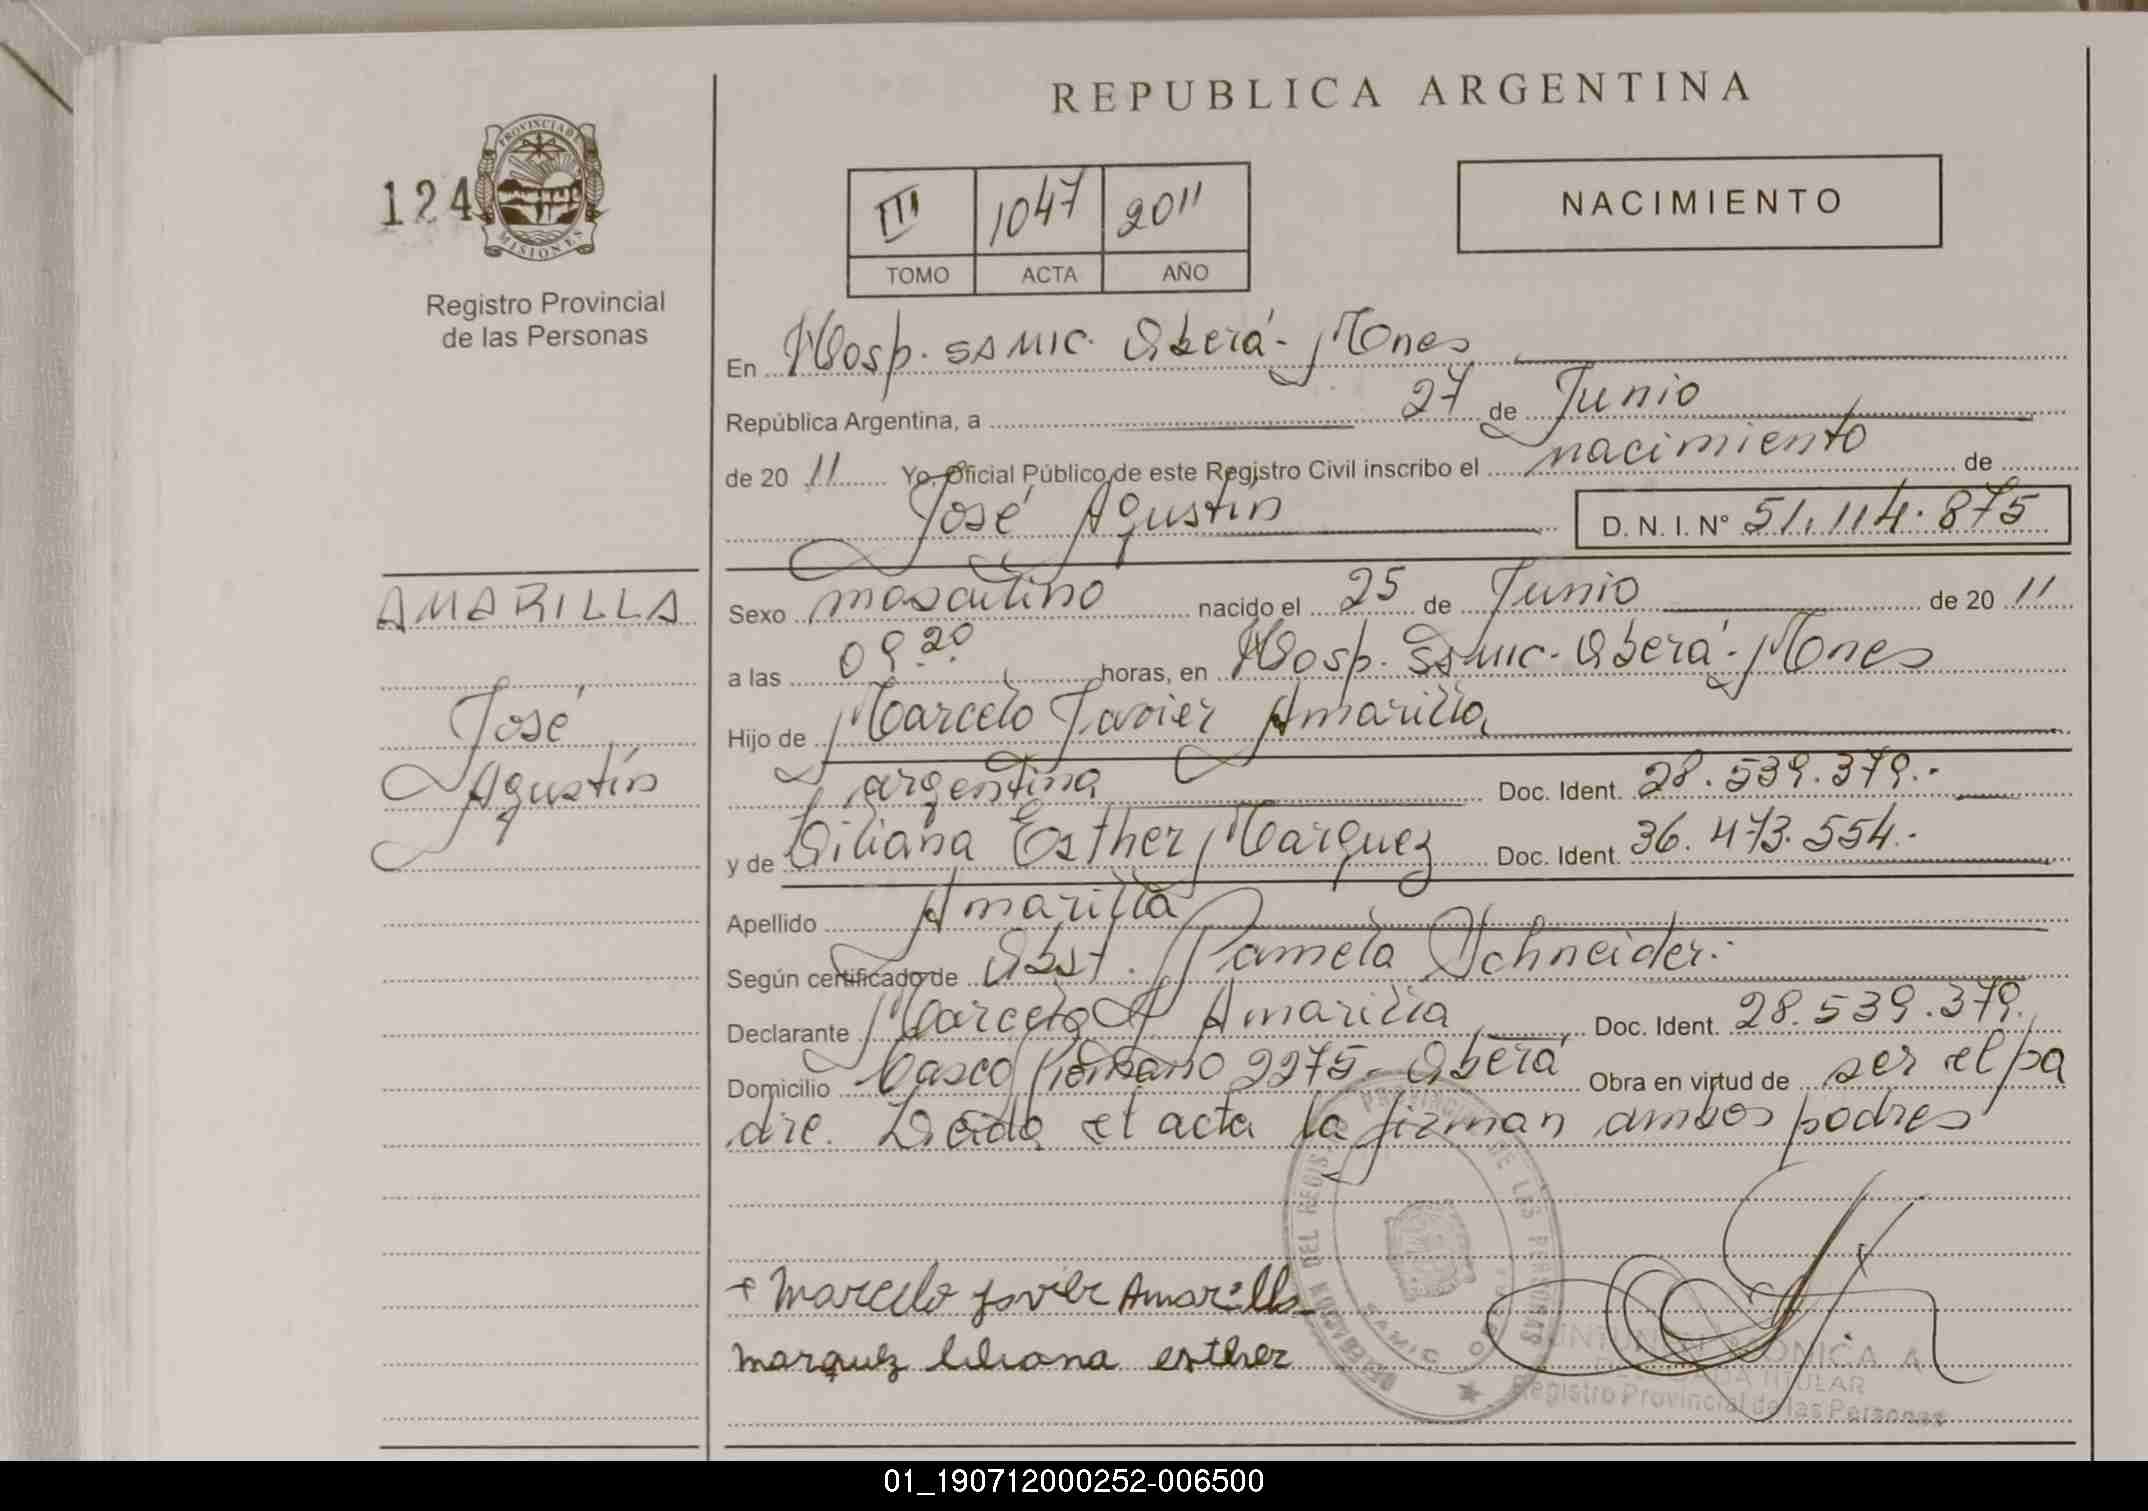 REPUBLICA ARGENTINA
124
PROVINCIA DE
MISIONES
Registro Provincial
de las Personas
III 1047 2011
TOMO ACTA AÑO
NACIMIENTO
En Hosp. SAMIC. Oberá - Mnes
República Argentina, a 27 de Junio
de 20 11 Yo, Oficial Público de este Registro Civil inscribo el nacimiento de
José Agustín D. N. I. Nº 51.114.875
AMARILLA
José
Agustín
Sexo masculino nacido el 25 de Junio de 20 11
a las 09.20 horas, en Hosp. SAMIC - Oberá - Mnes
Hijo de Marcelo Javier Amarilla
argentina Doc. Ident. 28.539.379.-
y de Liliana Esther Marquez Doc. Ident. 36.473.554.-
Apellido Amarilla
Según certificado de Obst. Pamela Schneider.
Declarante Marcelo J Amarilla Doc. Ident. 28.539.379.
Domicilio 2275 - Oberá Obra en virtud de ser el pa
dre. Leida el acta la firman ambos padres
Marcelo Javier Amarilla
Marquez liliana esther
PROVINCIAL DE LAS PERSONAS
SAMIC
TITULAR
Registro Provincial de las Personas
01_190712000252-006500